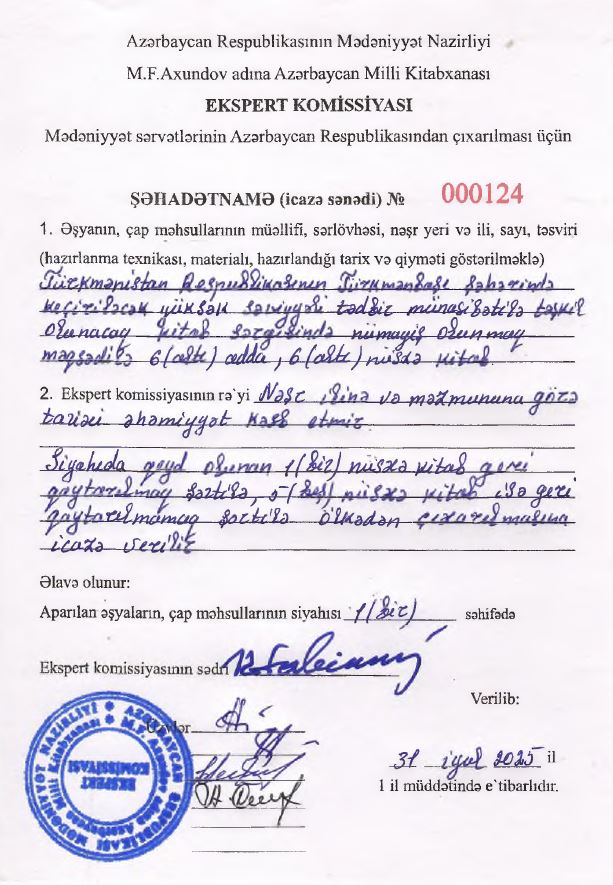 Azərbaycan Respublikasının Mədəniyyət Nazirliyi
M.F.Axundov adına Azərbaycan Milli Kitabxanası
EKSPERT KOMİSSİYASI
Mədəniyyət sərvətlərinin Azərbaycan Respublikasından çıxarılması üçün
ŞƏHADƏTNAMƏ (icazə sənədi) № 000124
1. Əşyanın, çap məhsullarının müəllifi, sərlövhəsi, nəşr yeri və ili, sayı, təsviri
(hazırlanma texnikası, materialı, hazırlandığı tarix və qiyməti göstərilməklə)
Türkmənistan Respublikasının Türkmənbaşı şəhərində
keçiriləcək yüksək səviyyəli tədbir münasibətilə təşkil
olunacaq kitab sərgisində nümayiş olunmaq
məqsədilə 6(altı) adda, 6(altı) nüsxə kitab
2. Ekspert komissiyasının rə`yi Nəşr ilinə və məzmununa görə
tarixi əhəmiyyət kəsb etmir
Siyahıda qeyd olunan 1(bir) nüsxə kitab geri
qaytarılmaq şərtilə, 5(beş) nüsxə kitab isə geri
qaytarılmamaq şərtilə ölkədən çıxarılmasına
icazə verilir
Əlavə olunur:
Aparılan əşyaların, çap məhsullarının siyahısı 1(bir) səhifədə
Ekspert komissiyasının sədri
Verilib:
Üzvlər
31 iyul 2025 il
1 il müddətində e`tibarlıdır.
AZƏRBAYCAN RESPUBLİKASI MƏDƏNİYYƏT NAZİRLİYİ
M.F. Axundov adına Azərbaycan Milli Kitabxanası
EKSPERT
KOMİSSİYASI